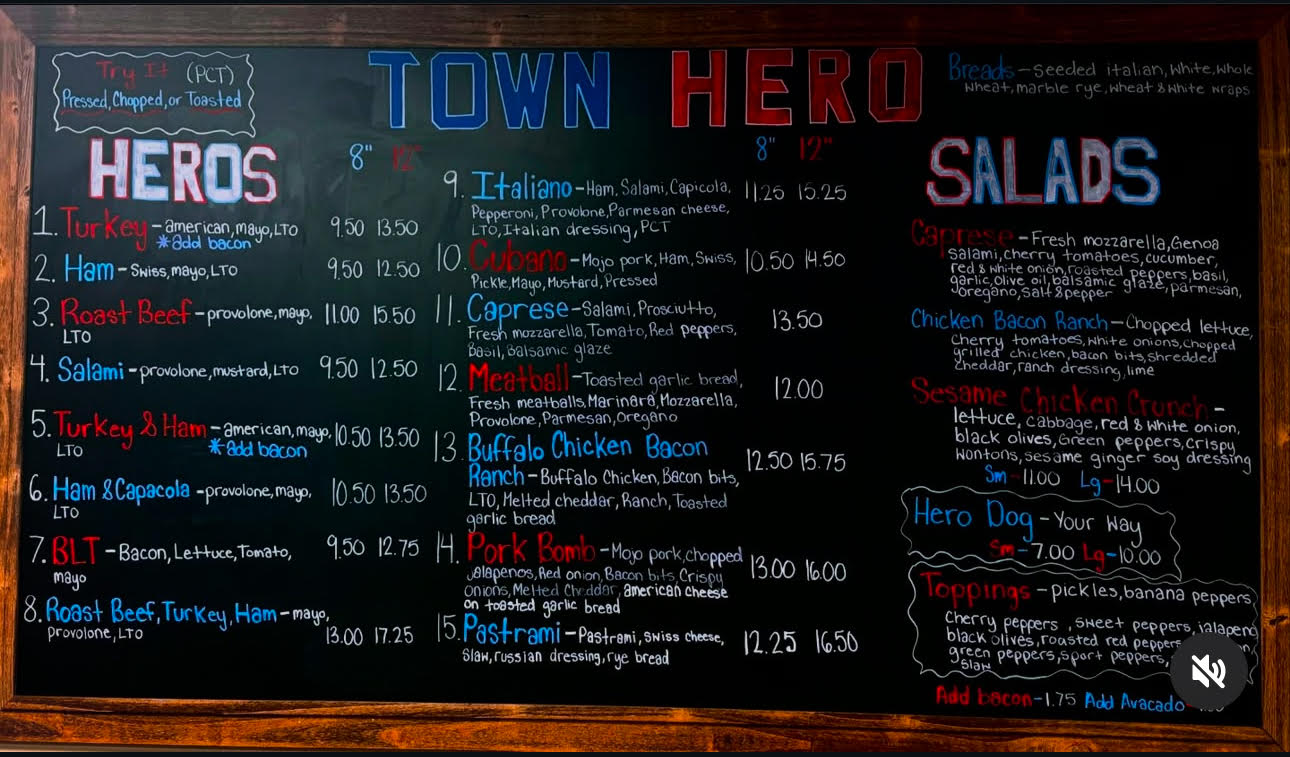 Try It (PCT)
Pressed, Chopped, or Toasted
TOWN HERO
Breads - seeded italian, white, whole
wheat, marble rye, wheat & white wraps
HEROS
8" 12"
1. Turkey - american, mayo, LTO 9.50 13.50
*add bacon
2. Ham - Swiss, mayo, LTO 9.50 12.50
3. Roast Beef - provolone, mayo, 11.00 15.50
LTO
4. Salami - provolone, mustard, LTO 9.50 12.50
5. Turkey & Ham - american, mayo, 10.50 13.50
LTO *add bacon
6. Ham & Capacola - provolone, mayo, 10.50 13.50
LTO
7. BLT - Bacon, Lettuce, Tomato, 9.50 12.75
mayo
8. Roast Beef, Turkey, Ham - mayo,
provolone, LTO 13.00 17.25
8" 12"
9. Italiano - Ham, Salami, Capicola, 11.25 15.25
Pepperoni, Provolone, Parmesan cheese,
LTO, Italian dressing, PCT
10. Cubano - Mojo pork, Ham, Swiss, 10.50 14.50
Pickle, Mayo, Mustard, Pressed
11. Caprese - Salami, Prosciutto, 13.50
Fresh mozzarella, Tomato, Red peppers,
Basil, Balsamic glaze
12. Meatball - Toasted garlic bread, 12.00
Fresh meatballs, Marinara, Mozzarella,
Provolone, Parmesan, Oregano
13. Buffalo Chicken Bacon
Ranch - Buffalo Chicken, Bacon bits, 12.50 15.75
LTO, Melted cheddar, Ranch, Toasted
garlic bread
14. Pork Bomb - Mojo pork, chopped 13.00 16.00
jalapenos, Red onion, Bacon bits, Crispy
onions, Melted Cheddar, american cheese
on toasted garlic bread
15. Pastrami - Pastrami, Swiss cheese, 12.25 16.50
Slaw, russian dressing, rye bread
SALADS
Caprese - Fresh mozzarella, Genoa
salami, cherry tomatoes, cucumber,
red & white onion, roasted peppers, basil,
garlic, olive oil, balsamic glaze, parmesan,
oregano, salt & pepper
Chicken Bacon Ranch - Chopped lettuce,
cherry tomatoes, white onions, chopped
grilled chicken, bacon bits, shredded
cheddar, ranch dressing, lime
Sesame Chicken Crunch -
lettuce, cabbage, red & white onion,
black olives, Green peppers, crispy
wontons, sesame ginger soy dressing
Sm - 11.00 Lg - 14.00
Hero Dog - Your Way
Sm - 7.00 Lg - 10.00
Toppings - pickles, banana peppers,
Cherry peppers, sweet peppers, jalapeno
black olives, roasted red peppers
green peppers, sport peppers,
slaw
Add bacon - 1.75 Add Avacado